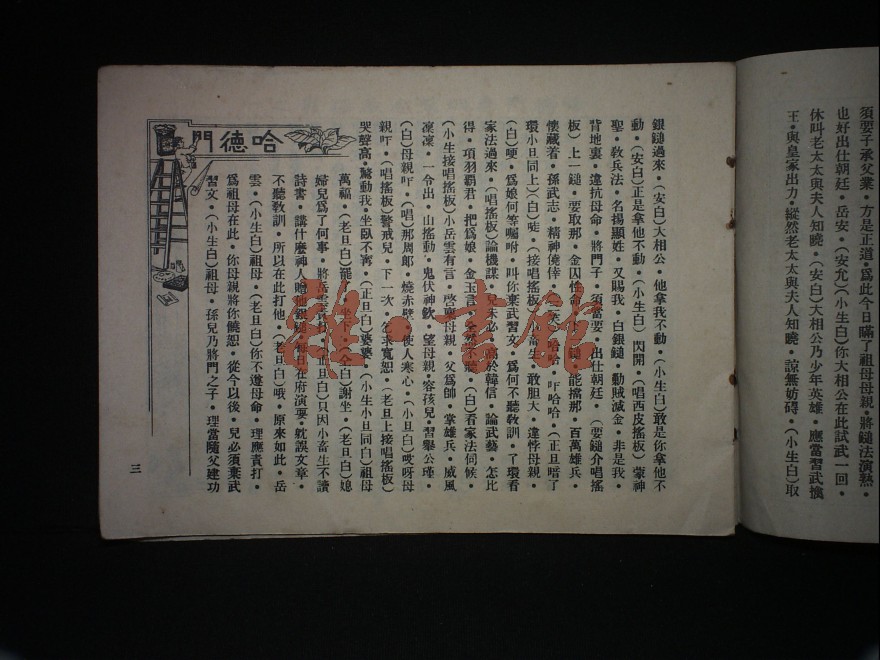 須要子承父業•方是正道•爲此今日瞞了祖母母親•將鎚法演熟•
也好出仕朝廷•岳安•（安允）（小生白）你大相公在此試武一回•
休叫老太太與夫人知曉•（安白）大相公乃少年英雄•應當習武擒
王•與皇家出力•縱然老太太與夫人知曉•諒無妨碍•（小生白）取
銀鎚過來•（安白）大相公•他拿我不動•（小生白）敢是你拿他不
動•（安白）正是拿他不動•（小生白）閃開•（唱西皮搖板）蒙神
聖•敎兵法•名揚顯姓•又賜我•白銀鎚•勦賊滅金•非是我•
背地裏•違抗母命•將門子•須當要•出仕朝廷•（耍鎚介唱搖
板）上一鎚•要取那•金囚性命•鎚•能擋那•百萬雄兵•
懷藏着•孫武志•精神僥倖•（三笑）哈哈•吓哈哈•（正旦唶了
環小旦同上）（白）唗•（接唱搖板）小畜生•敢胆大•違悖母親•
（白）哽•爲娘何等囑咐•叫你棄武習文•爲何不聽敎訓•了環看
家法過來•（唱搖板）論機謀•兒未必•高於韓信•論武藝•怎比
得•項羽霸君•把爲娘•金玉言•全然不聽•（白）看家法伺候•
（小生接唱搖板）小岳雲有言•啓禀母親•父爲帥•掌雄兵•威風
凜凜•一令出•山搖動•鬼伏神欽•望母親•容孩兒•習學公瑾•
（白）母親吓•（唱）那周郎•燒赤壁•使人寒心•（小旦白）哎呀母
親吓•（唱搖板）警戒兒•下一次•乞求寬恕•（老旦上接唱搖板）
哭聲高•驚動我•坐臥不寧•（正旦白）婆婆•（小生小旦同白）祖母
萬福•（老旦白）罷•坐下•（仝白）謝坐•（老旦白）媳
婦兒爲了何事•將岳雲責打•（正旦白）只因小畜生不讀
詩書•講什麼神人贈他銀鎚•每日在府演耍•躭誤文章•
不聽敎訓•所以在此打他•（老旦白）哦•原來如此•岳
雲•（小生白）祖母•（老旦白）你不遵母命•理應責打•
爲祖母在此•你母親將你饒恕•從今以後•兒必須棄武
習文•（小生白）祖母•孫兒乃將門之子•理當隨父建功
哈德門
三
雅•書館